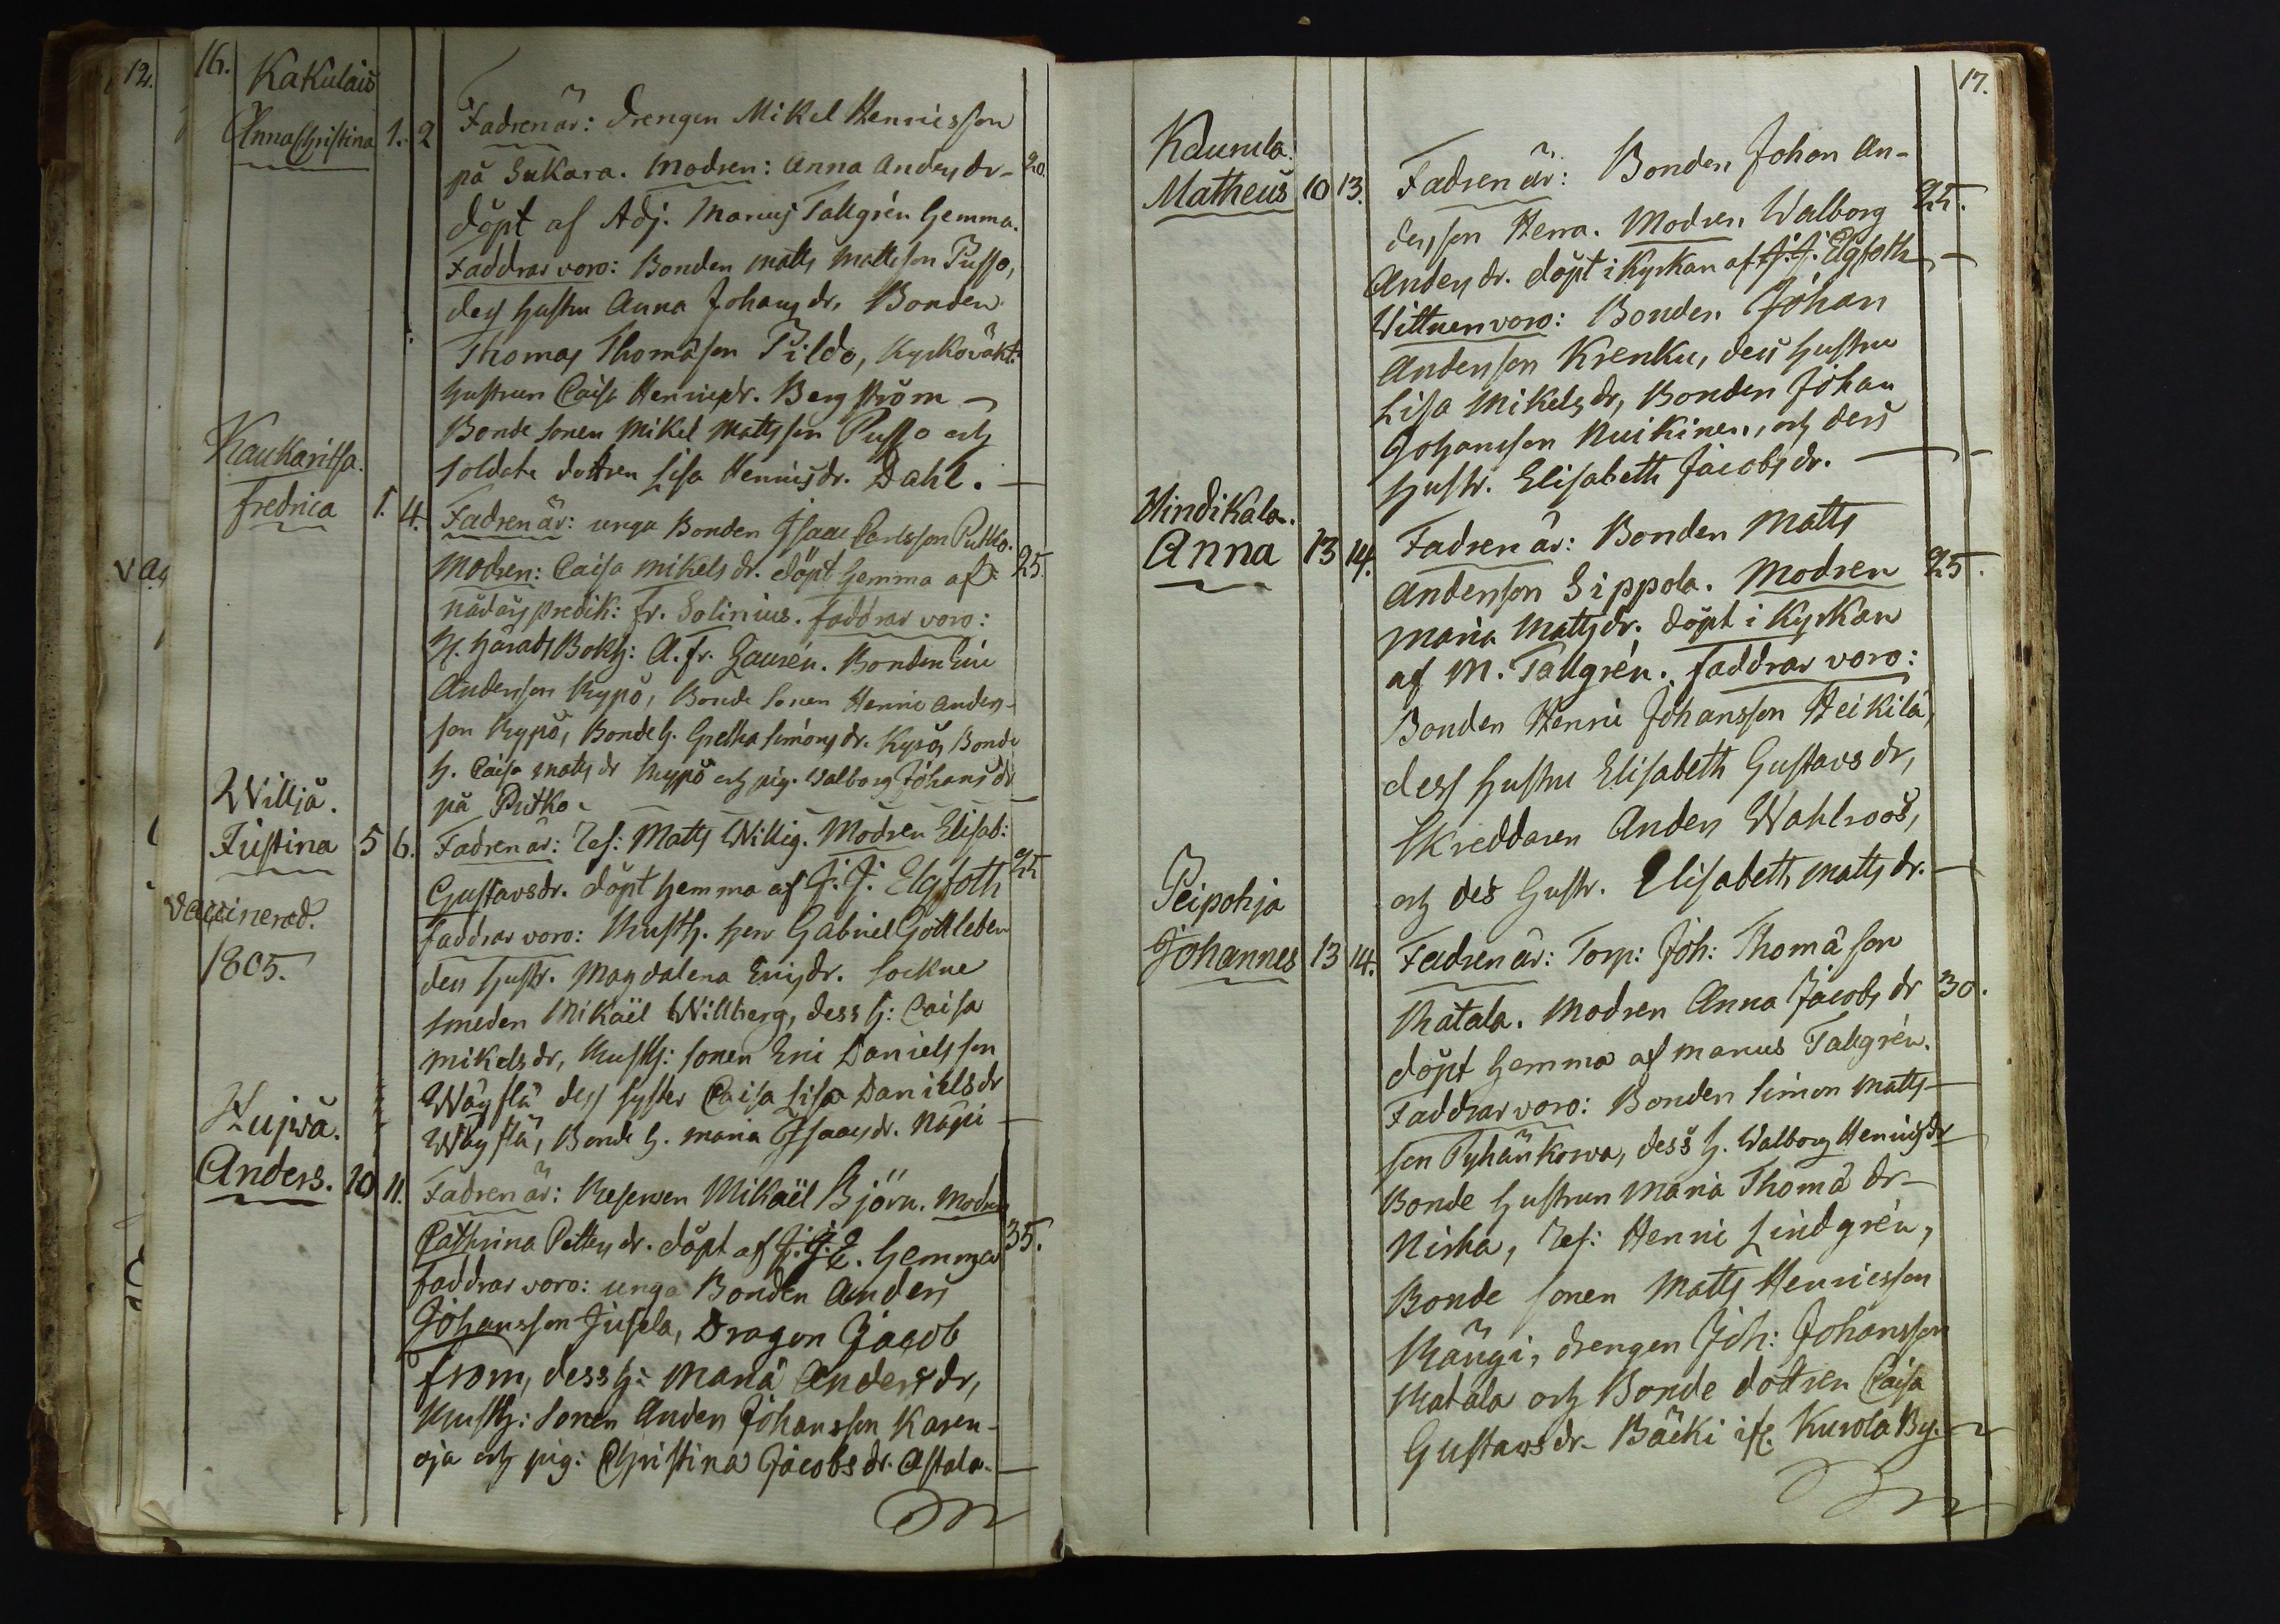 16.
Kakulais
Anna Christina 1. 2
Fadren är: drengen Mikel Henricsson
på Sukara. Modren: Anna Anders dr- 20.
döpt af Adj. Manus Tallgrén hemma.
Faddrar voro: Bonden Matts Mattsson Pusso,
dess hustru Anna Johans dr, Bonden
Thomas Thomason Pildo, Kyrkovakt:
hustrun Caisa Henricsdr. Bergström
Bonde sonen Mikel Mattsson Pusso och
soldate dottren Lisa Henricsdr. Dahl.
Kaukaritsa.
Fredrica 1. 4.
Fadren är: unga Bonden Isaac Carlsson Putko.
Modren: Caisa Mikels dr. döpt hemma af 25.
nådårs predik: Fr. Solinius. Faddrar voro:
H. härads Bokh: A. Fr. Laurén. Bonden Eric
Andersson Kypö, Bonde sonen Henric Anders-
son Kypö, Bonde h. Gretha Simons dr. Kypö, Bonde
h. Caisa Matts dr Kypö och pig. Walborg Johans dr
på Putko.
Willjä.
Justina 5 6.
Fadren är: Res: Matts Willig. Modren Elisab: 25
Gustavsdr. döpt hemma af J. J. Elgfoth
vaccinerad.
1805.
Faddrar voro: Rusth. herr Gabriel Gottleben
dess hustr. Magdalena Ericsdr. Sockne
smeden Mikaël Willberg, dess h: Caisa
Mikels dr, Rusth: sonen Eric Danielsson
Wäyslä dess syster Caisa Lisa Daniels dr
Wäyslä, Bonde h. Maria Isaacs dr. Näpi
Hujwa.
Anders. 10 11.
Fadren är: Reserven Mikaël Björn. Modren
Cathrina Petters dr. döpt af J. J. E. hemma 35.
Faddrar voro: unga Bonden Anders
Johansson Jusela, Dragon Jacob
From, dess h: Maria Anders dr,
Rusth: sonen Anders Johansson Karen-
oja och pig: Christina Jacobs dr. Astala.
17.
Kaurula.
Matheus 10 13.
Fadren är: Bonden Johan An-
dersson Herra. Modren Walborg 25.
Anders dr. döpt i Kyrkan af J. J. Elgfoth
Wittnen voro: Bonden Johan
Andersson Krenku, dess hustru
Lisa Mikels dr, Bonden Johan
Johansson Nuikinen, och dess
hustr. Elisabeth Jacobs dr.
Hindikala.
Anna 13 14.
Fadren är: Bonden Matts
Andersson Sippola. Modren 25.
Maria Matts dr. döpt i Kyrkan
af M. Tallgrén. Faddrar voro:
Bonden Henric Johansson Heikilä,
dess hustru Elisabeth Gustavs dr,
Skreddaren Anders Wahlroos,
och des hustr. Elisabeth Matts dr.
Peipohja
Johannes 13 14.
Fadren är: Torp: Joh: Thomason
Matala. Modren Anna Jacobs dr 30.
döpt hemma af Manus Tallgrén.
Faddrar voro: Bonden Simon Matts-
son Pyhänkorva, dess h. Walborg Henricsdr
Bonde hustrun Maria Thoma dr-
Niska, Res: Henric Lindgrén,
Bonde sonen Matts Henricsson
Mängi, drengen Joh: Johansson
Matala och Bonde dottren Caisa
Gustavs dr. Bäcki ifr. Kurola By.